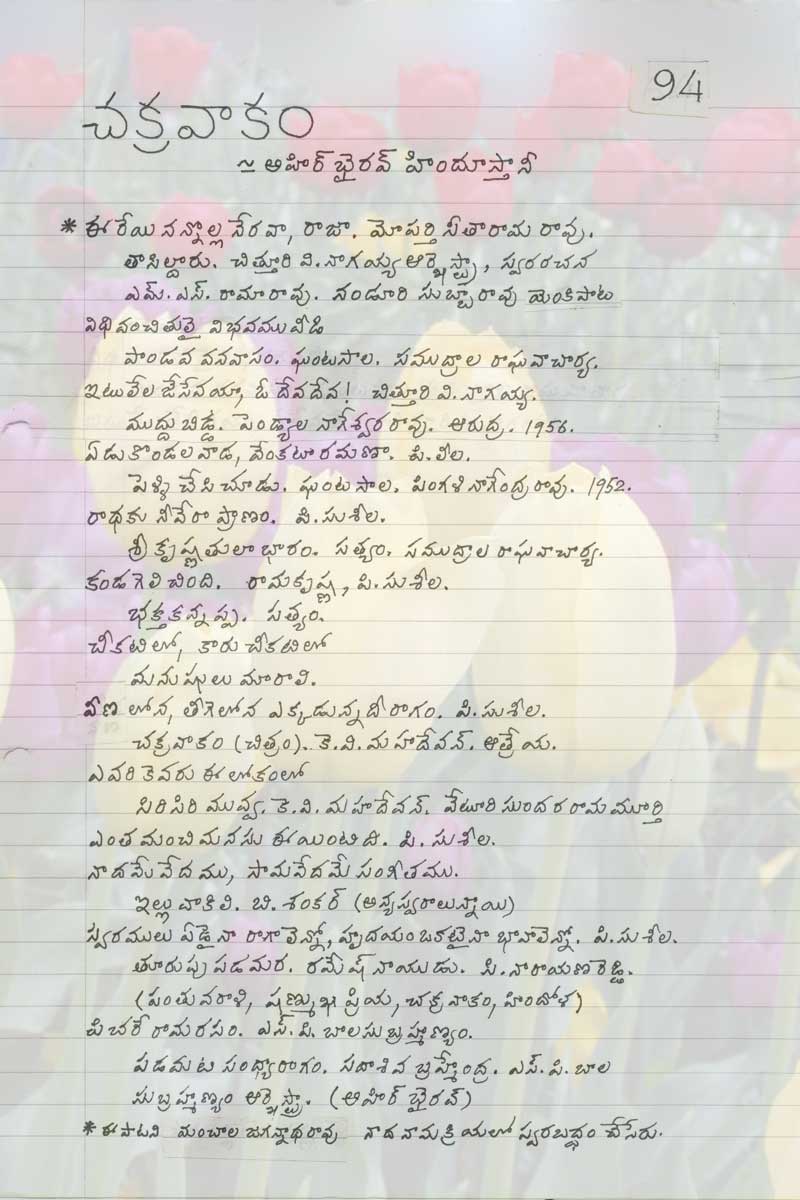 94
చక్రవాకం
~ అహిర్ భైరవ్ హిందూస్తానీ
* ఈ రేయి నన్నొల్ల నేరవా, రాజా. మోపర్తి సీతారామ రావు.
తాసిల్దారు. చిత్తూరి వి.నాగయ్య ఆర్కెస్ట్రా, స్వరరచన
ఎమ్.ఎస్. రామారావు. నండూరి సుబ్బారావు యెంకిపాట
విధివంచితులై విభవము వీడి
పాండవ వనవాసం. ఘంటసాల. సముద్రాల రాఘవాచార్య.
ఇటులేల జేసేవయా, ఓ దేవదేవ! చిత్తూరి వి.నాగయ్య.
ముద్దుబిడ్డ. పెండ్యాల నాగేశ్వరరావు. ఆరుద్ర. 1956.
ఏడుకొండలవాడ, వేంకటారమణా. పి.లీల.
పెళ్ళి చేసి చూడు. ఘంటసాల. పింగళి నాగేంద్రరావు. 1952.
రాధకు నీవేరా ప్రాణం. పి.సుశీల.
శ్రీకృష్ణతులాభారం. సత్యం. సముద్రాల రాఘవాచార్య.
కండగెలిచింది. రామకృష్ణ, పి.సుశీల.
భక్తకన్నప్ప. సత్యం.
చీకటిలో, కారుచీకటిలో
మనుషులు మారాలి.
వీణ లోన, తీగెలోన ఎక్కడున్నదీ రాగం. పి.సుశీల.
చక్రవాకం (చిత్రం). కె.వి.మహదేవన్. ఆత్రేయ.
ఎవరికెవరు ఈ లోకంలో
సిరిసిరిమువ్వ. కె.వి.మహదేవన్. వేటూరి సుందరరామమూర్తి
ఎంత మంచి మనసు ఈయింటిది. పి.సుశీల.
నాదమే వేదము, సామవేదమే సంగీతము.
ఇల్లు వాకిలి. బి.శంకర్ (అన్యస్వరాలున్నాయి)
స్వరములు ఏడైనా రాగాలెన్నో, హృదయం ఒకటైనా భావాలెన్నో. పి.సుశీల.
తూరుపు పడమర. రమేష్ నాయుడు. సి.నారాయణరెడ్డి.
(పంతువరాళి, షణ్ముఖప్రియ, చక్రవాకం, హిందోళ)
పిబరే రామరసం. ఎస్.పి.బాలసుబ్రహ్మణ్యం.
పడమట సంధ్యారాగం. సదాశివ బ్రహ్మేంద్ర. ఎస్.పి.బాల
సుబ్రహ్మణ్యం ఆర్కెస్ట్రా. (ఆహిర్ భైరవ్)
* ఈ పాటని మంచాల జగన్నాధరావు నాదనామక్రియలో స్వరబద్ధం చేసేరు.